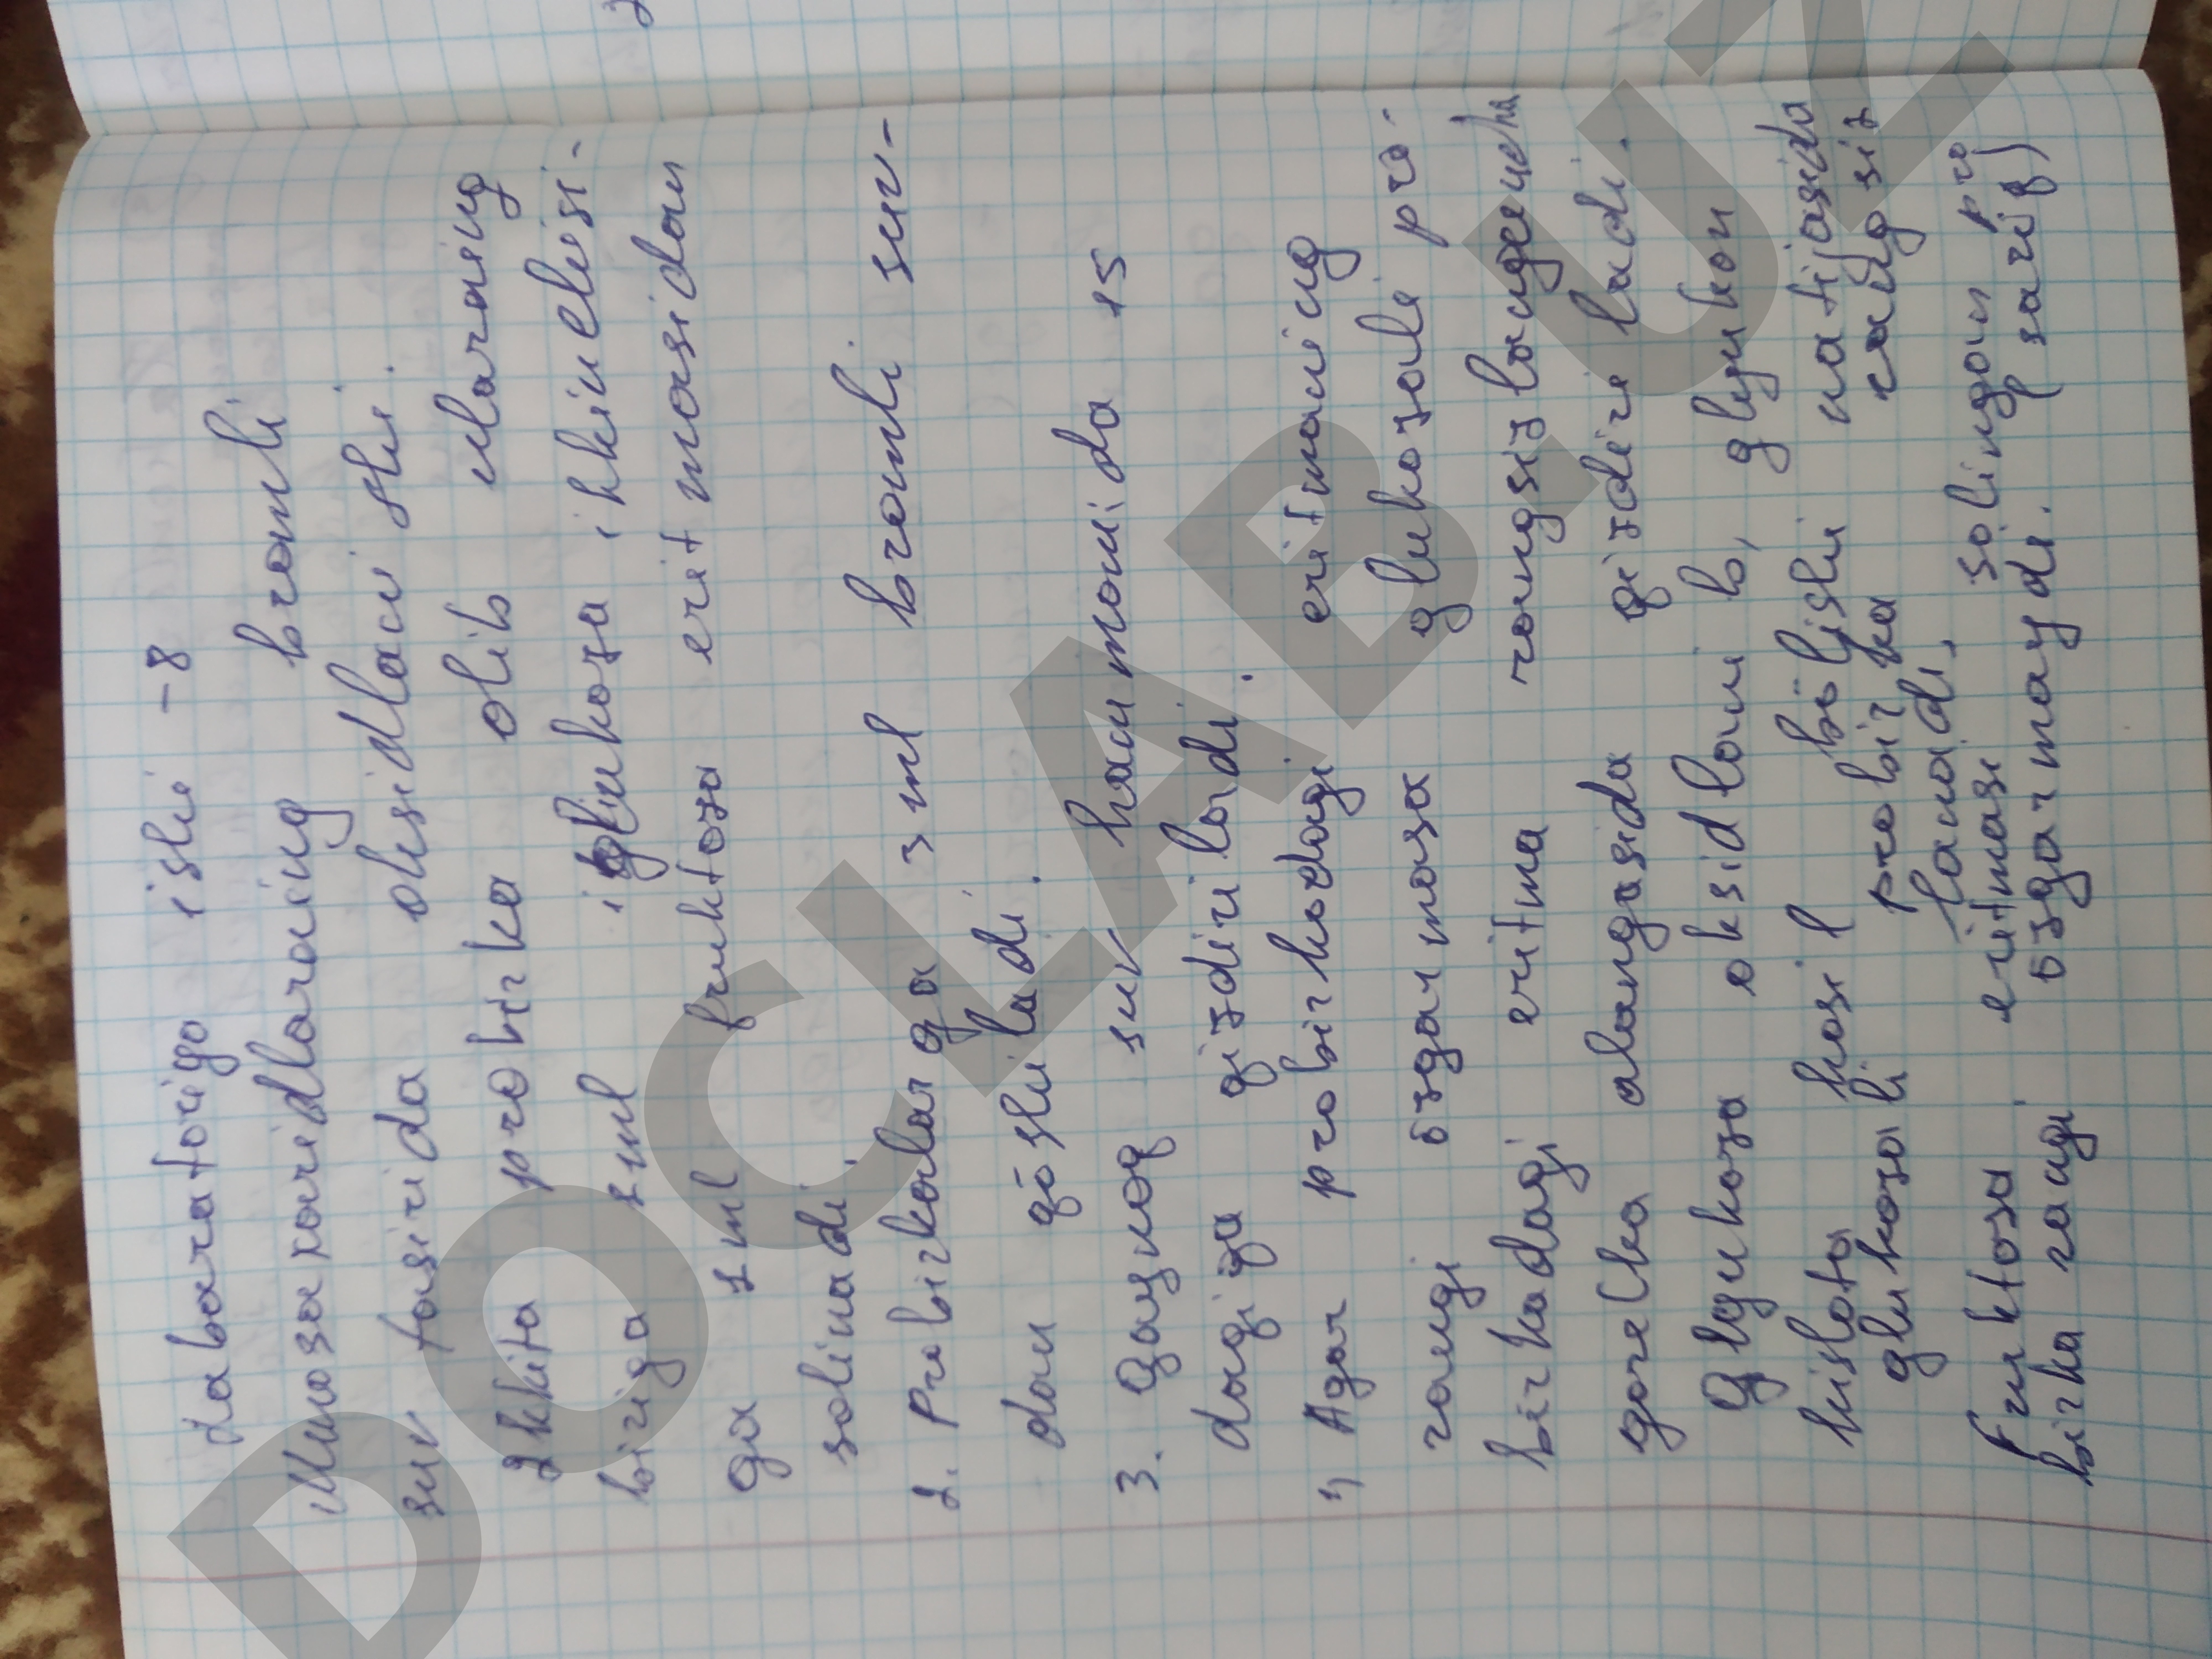 Laboratoriya ishi - 8
Monosaxaridlarning bromli
suv tasirida oksidlanishi.
2 kkita probirka olib ularning
biriga 1 ml glukoza ikkinchisi-
ga 1 ml fruktoza eritmasidan
solinadi.
2. Probirkalarga 3 ml bromli suv-
dan qo'shiladi.
3. Qaynoq suv hammomida 15
daqiqa qizdiriladi.
1) Agar probirkadagi eritmaning
rangi õzgarmasa glukozali pro-
birkadagi eritma rangsizlanguncha
gorelka alangasida qizdiriladi.
Glyukoza oksidlanib, glyukon
kislota hosil bõlishi natijasida
glukozali probirka rangsiz
lanadi,
Fruktoza eritmasi solingan pro
birka rangi õzgarmaydi. (sariq)
DOCLAB.UZ